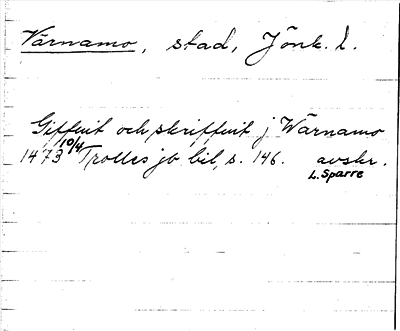 Värnamo, stad, Jönk. l.
Giffuit och skriffuit j Wärnamo
1473 10/4 Trolles jb bil, s. 146. avskr.
L. Sparre